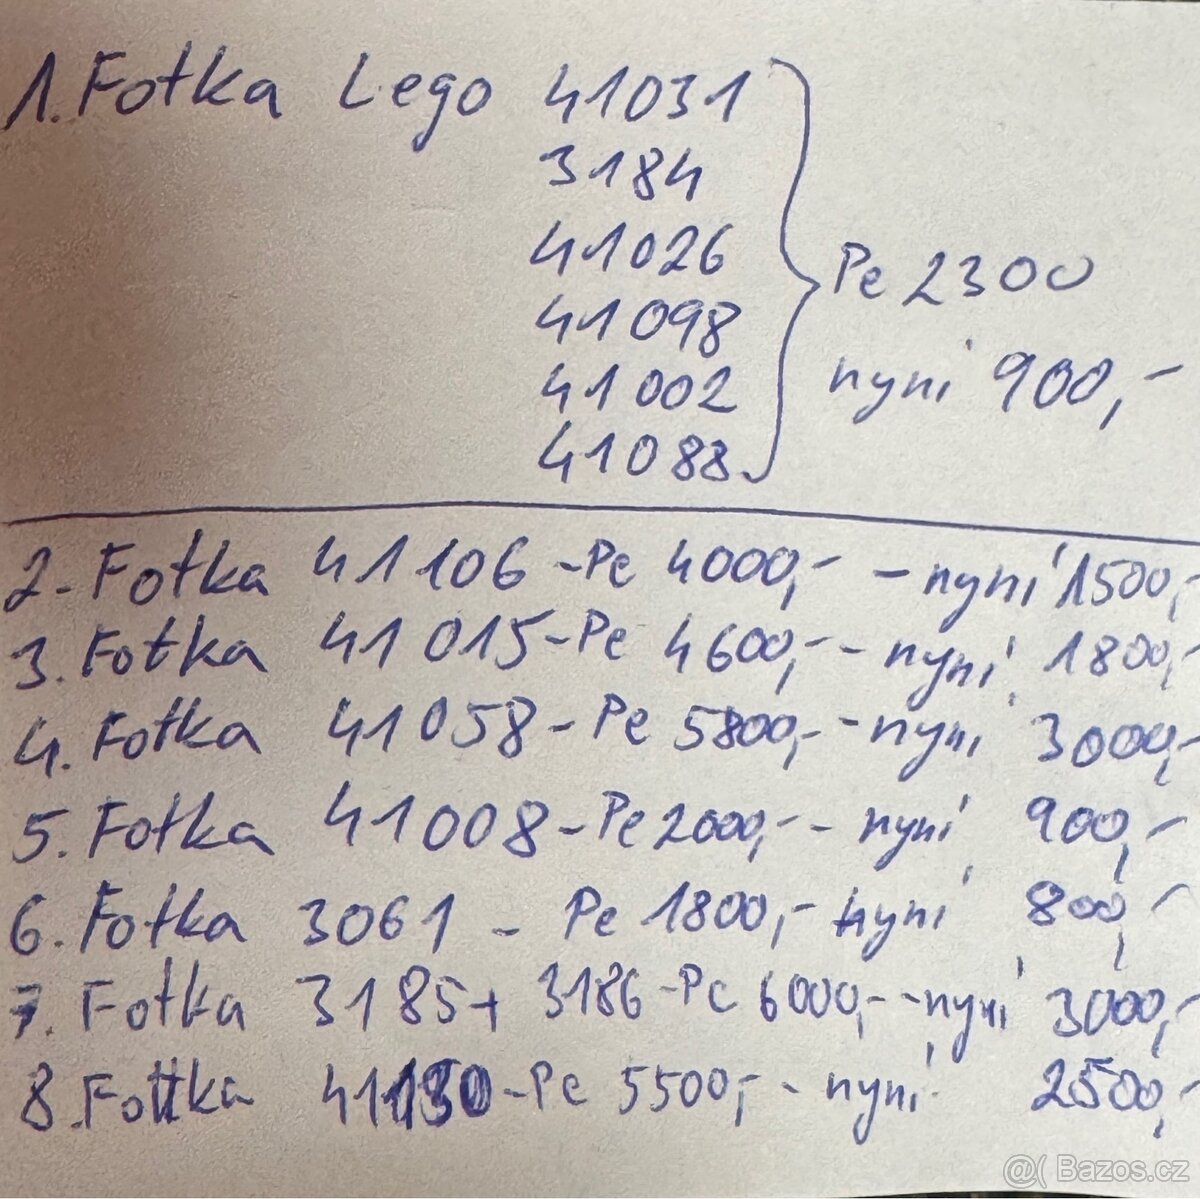 1. Fotka Lego 41031
3184
41026
41098
41002
41088
Pe 2300
nyní 900,-
2. Fotka 41106 - Pe 4000,- - nyní 1500,-
3. Fotka 41015 - Pe 4600,- - nyní 1800,-
4. Fotka 41058 - Pe 5800,- - nyní 3000,-
5. Fotka 41008 - Pe 2000,- - nyní 900,-
6. Fotka 3061 - Pe 1800,- nyní 800,-
7. Fotka 3185 + 3186 - Pc 6000,- - nyní 3000,-
8. Fotka 41130 - Pe 5500,- - nyní 2500,-
@( Bazos.cz